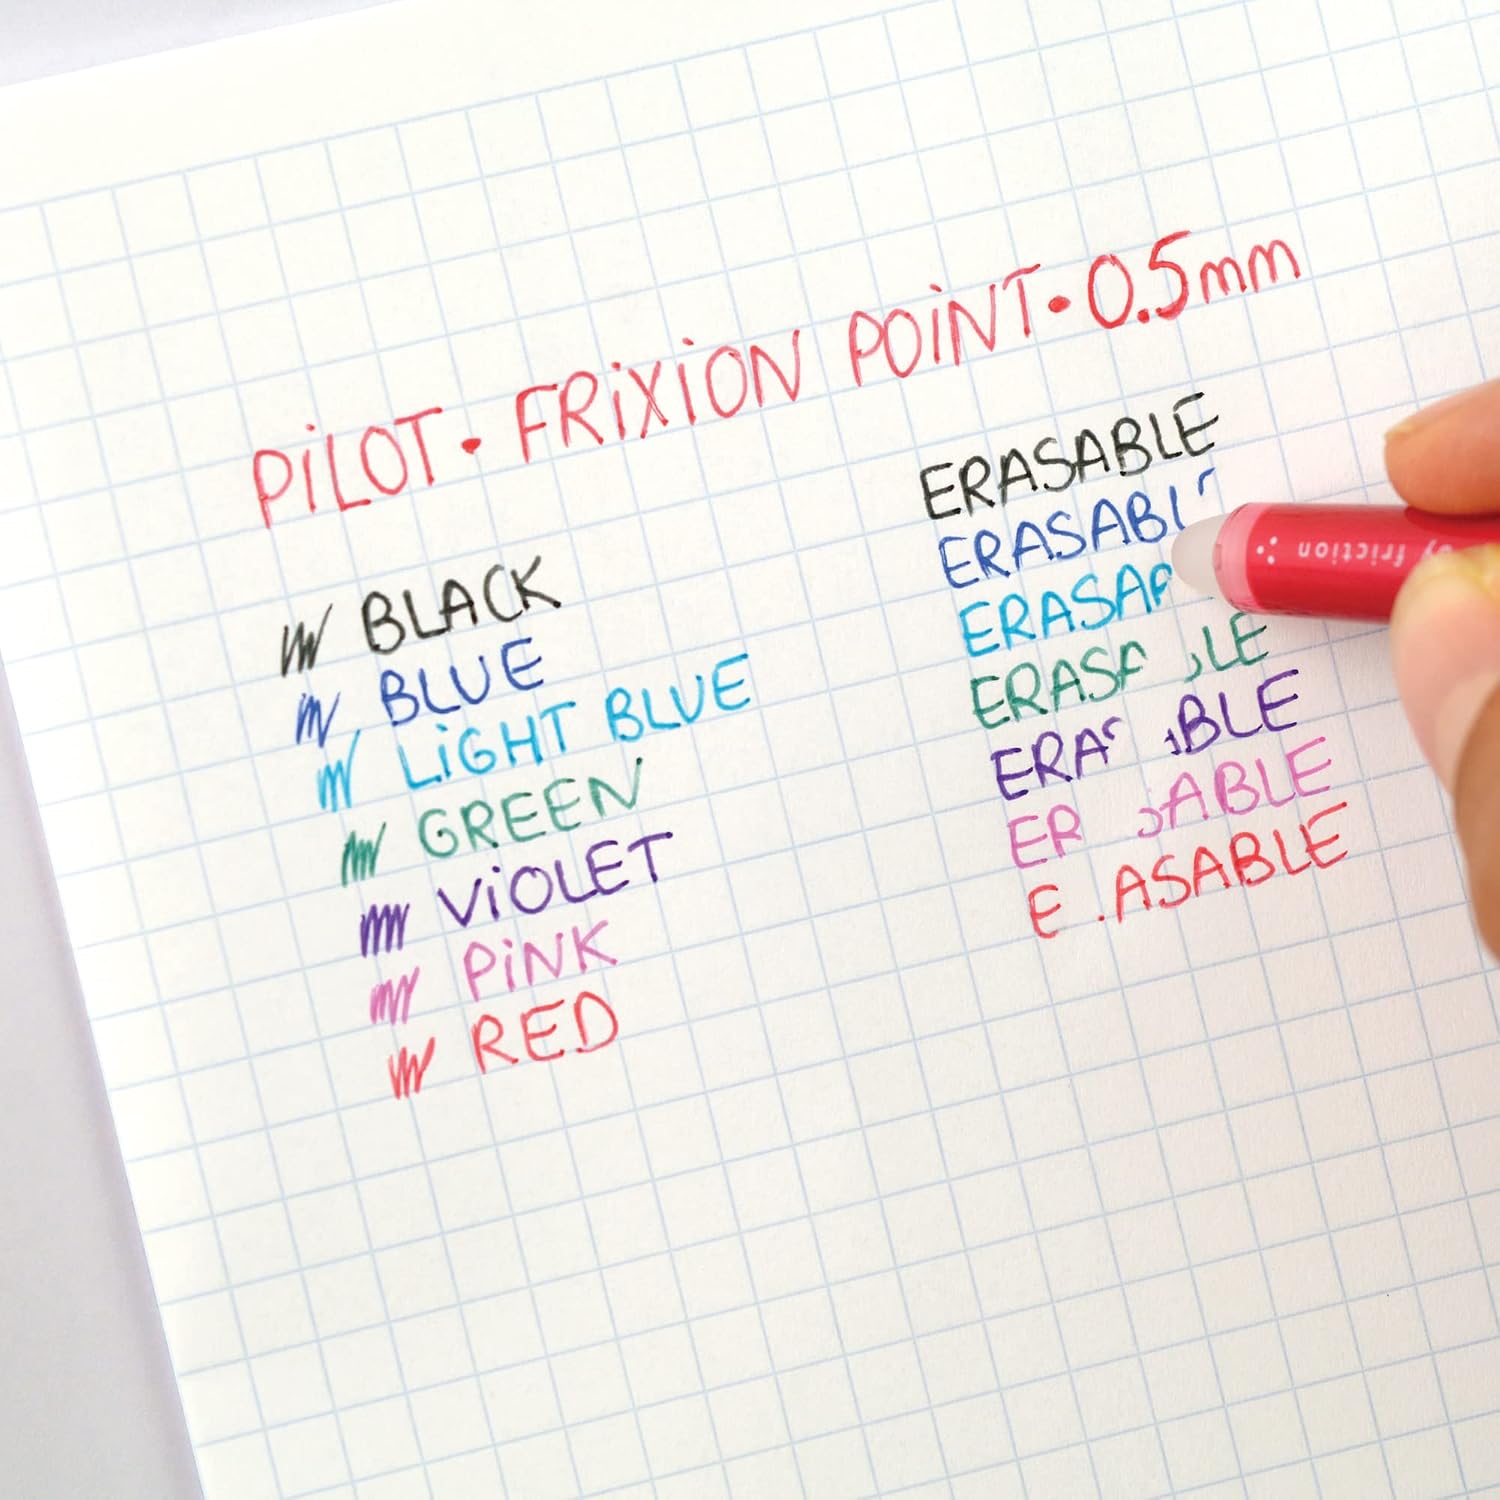 PiLOT · FRiXiON POiNT · 0.5mm
BLACK
BLUE
LiGHT BLUE
GREEN
ViOLET
PiNK
RED
ERASABLE
ERASABL
ERASA
ERASA LE
ERA BLE
ER ABLE
E ASABLE
friction